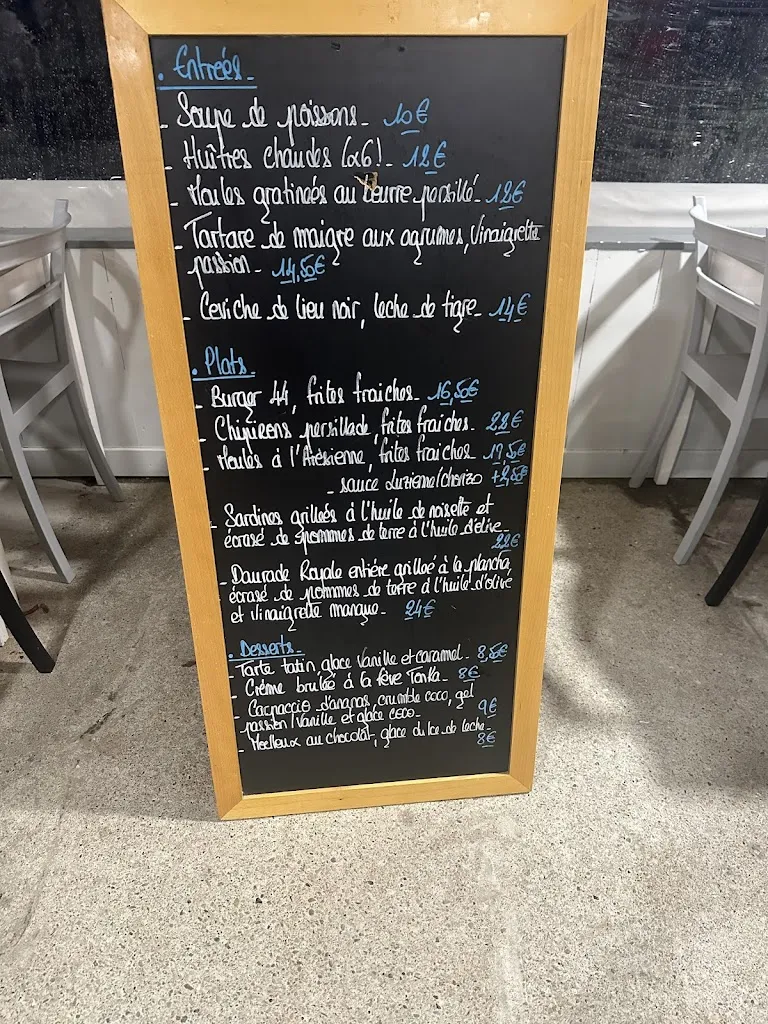 . Entrées -
- Soupe de poissons - 10€
- Huîtres chaudes (x6) - 12€
- Moules gratinées au beurre persillé - 12€
- Tartare de maigre aux agrumes, Vinaigrette
passion - 14,50€
- Ceviche de lieu noir, leche de tigre - 14€
. Plats -
- Burger 44, frites fraiches - 16,50€
- Chipirons persillade, frites fraiches - 22€
- Moules à l'Arèsienne, frites fraiches - 17,50€
- sauce Luzienne/chorizo +2,50€
- Sardines grillées à l'huile de noisette et
écrasé de pommes de terre à l'huile d'olive -
22€
- Daurade Royale entière grillée à la plancha,
écrasé de pommes de terre à l'huile d'olive
et vinaigrette mangue - 24€
. Desserts -
- Tarte tatin, glace Vanille et caramel - 8,50€
- Crème brulée à la fève Tonka - 8€
- Carpaccio d'ananas, crumble coco, gel
passion/vanille et glace coco - 9€
- Moelleux au chocolat, glace dulce de leche -
8€